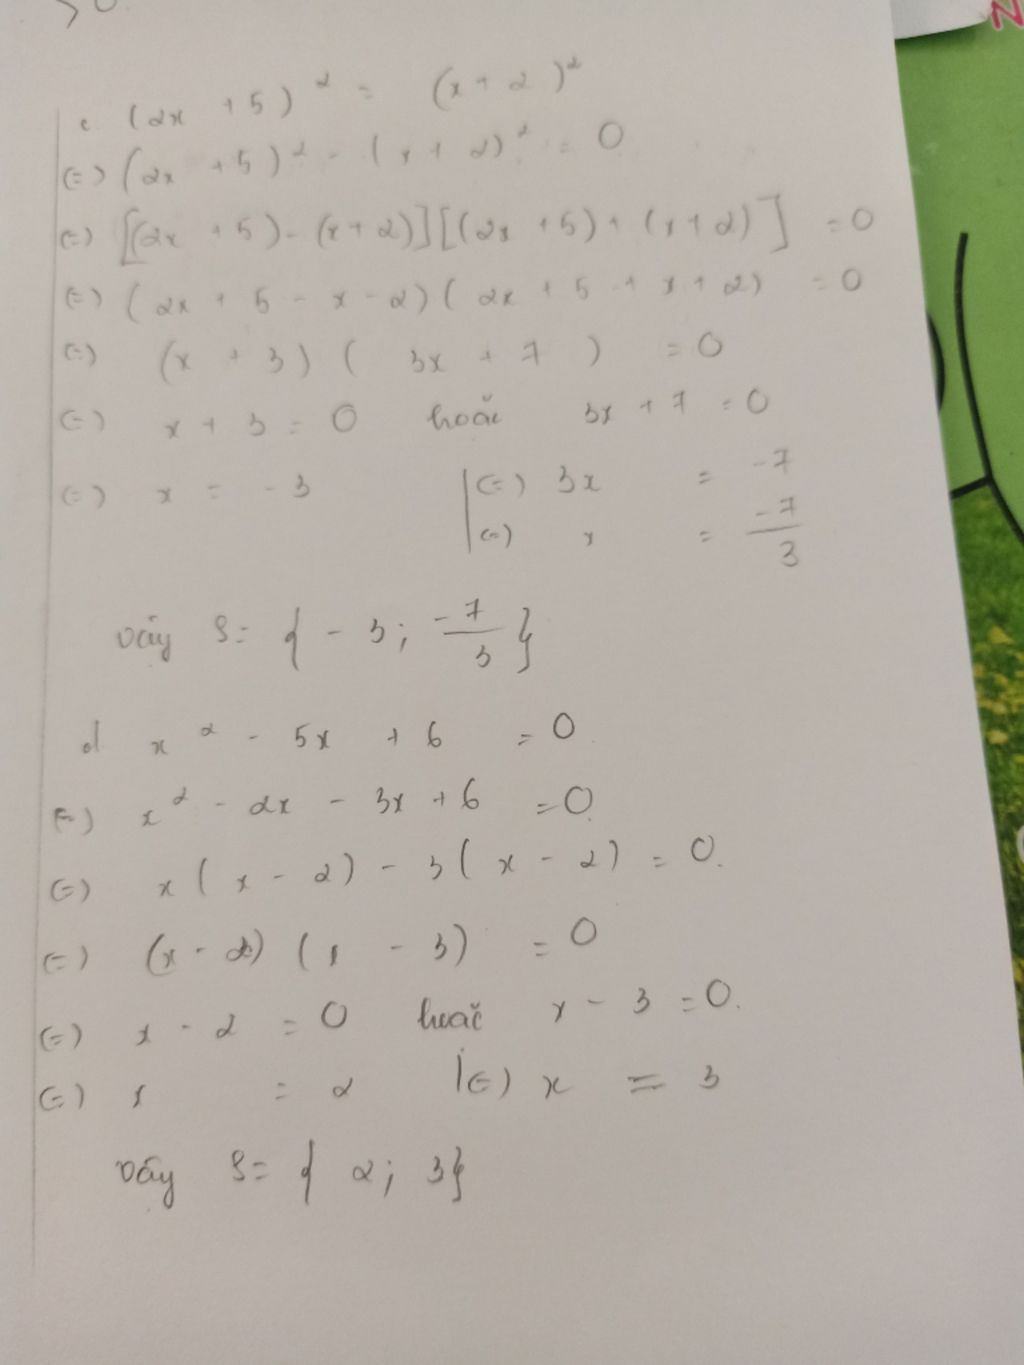 c. (2x + 5)² = (x + 2)²
(=) (2x + 5)² - (x + 2)² = 0
(=) [(2x + 5) - (x + 2)][(2x + 5) + (x + 2)] = 0
(=) (2x + 5 - x - 2)(2x + 5 + x + 2) = 0
(=) (x + 3)(3x + 7) = 0
(=) x + 3 = 0 hoặc 3x + 7 = 0
(=) x = -3 |(=) 3x = -7
|(=) x = -7/3
Vậy S = { -3; -7/3 }
d x² - 5x + 6 = 0
(=) x² - 2x - 3x + 6 = 0
(=) x(x - 2) - 3(x - 2) = 0.
(=) (x - 2)(x - 3) = 0
(=) x - 2 = 0 hoặc x - 3 = 0.
(=) x = 2 |(=) x = 3
Vậy S = { 2; 3}